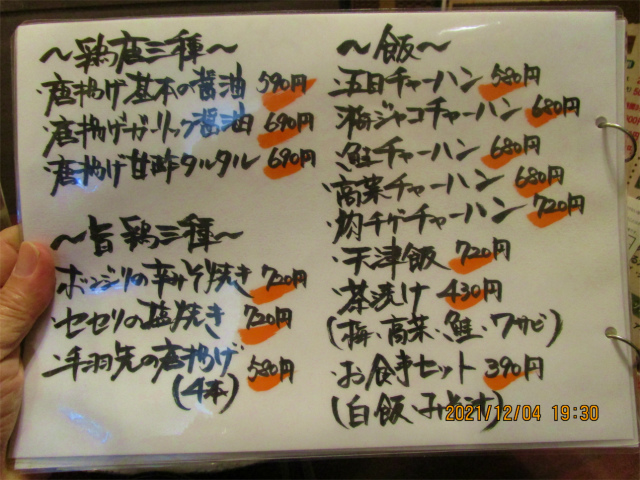 〜鶏唐三種〜
・唐揚げ基本の醤油 590円
・唐揚げガーリック醤油 690円
・唐揚げ甘酢タルタル 690円
〜旨鶏三種〜
・ボンジリの辛みそ焼き 720円
・セセリの塩焼き 720円
・手羽先の唐揚げ 580円
(4本)
〜飯〜
・五目チャーハン 580円
・梅ジャコチャーハン 680円
・鮭チャーハン 680円
・高菜チャーハン 680円
・肉チゲチャーハン 720円
・天津飯 720円
・茶漬け 430円
(梅・高菜・鮭・ワサビ)
・お食事セット 390円
(白飯・みそ汁)
2021/12/04 19:30